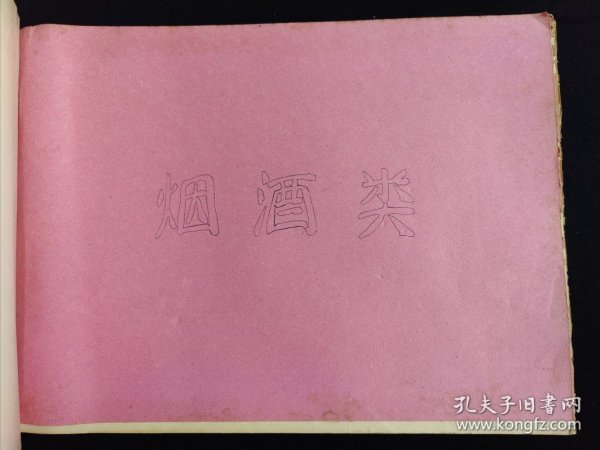 烟酒类
孔夫子旧书网
www.kongfz.com